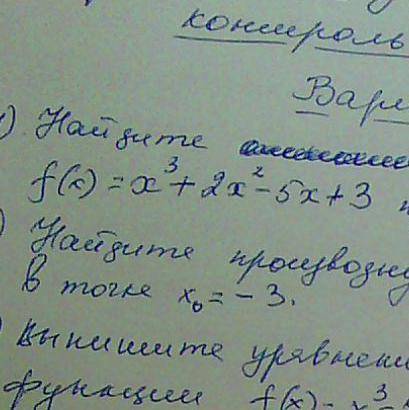 контроль
Вар
) Найдите
f(x) = x³ + 2x² - 5x + 3
) Найдите производну
в точке x₀ = - 3.
) выпишите уравнени
функции f(x) - x³